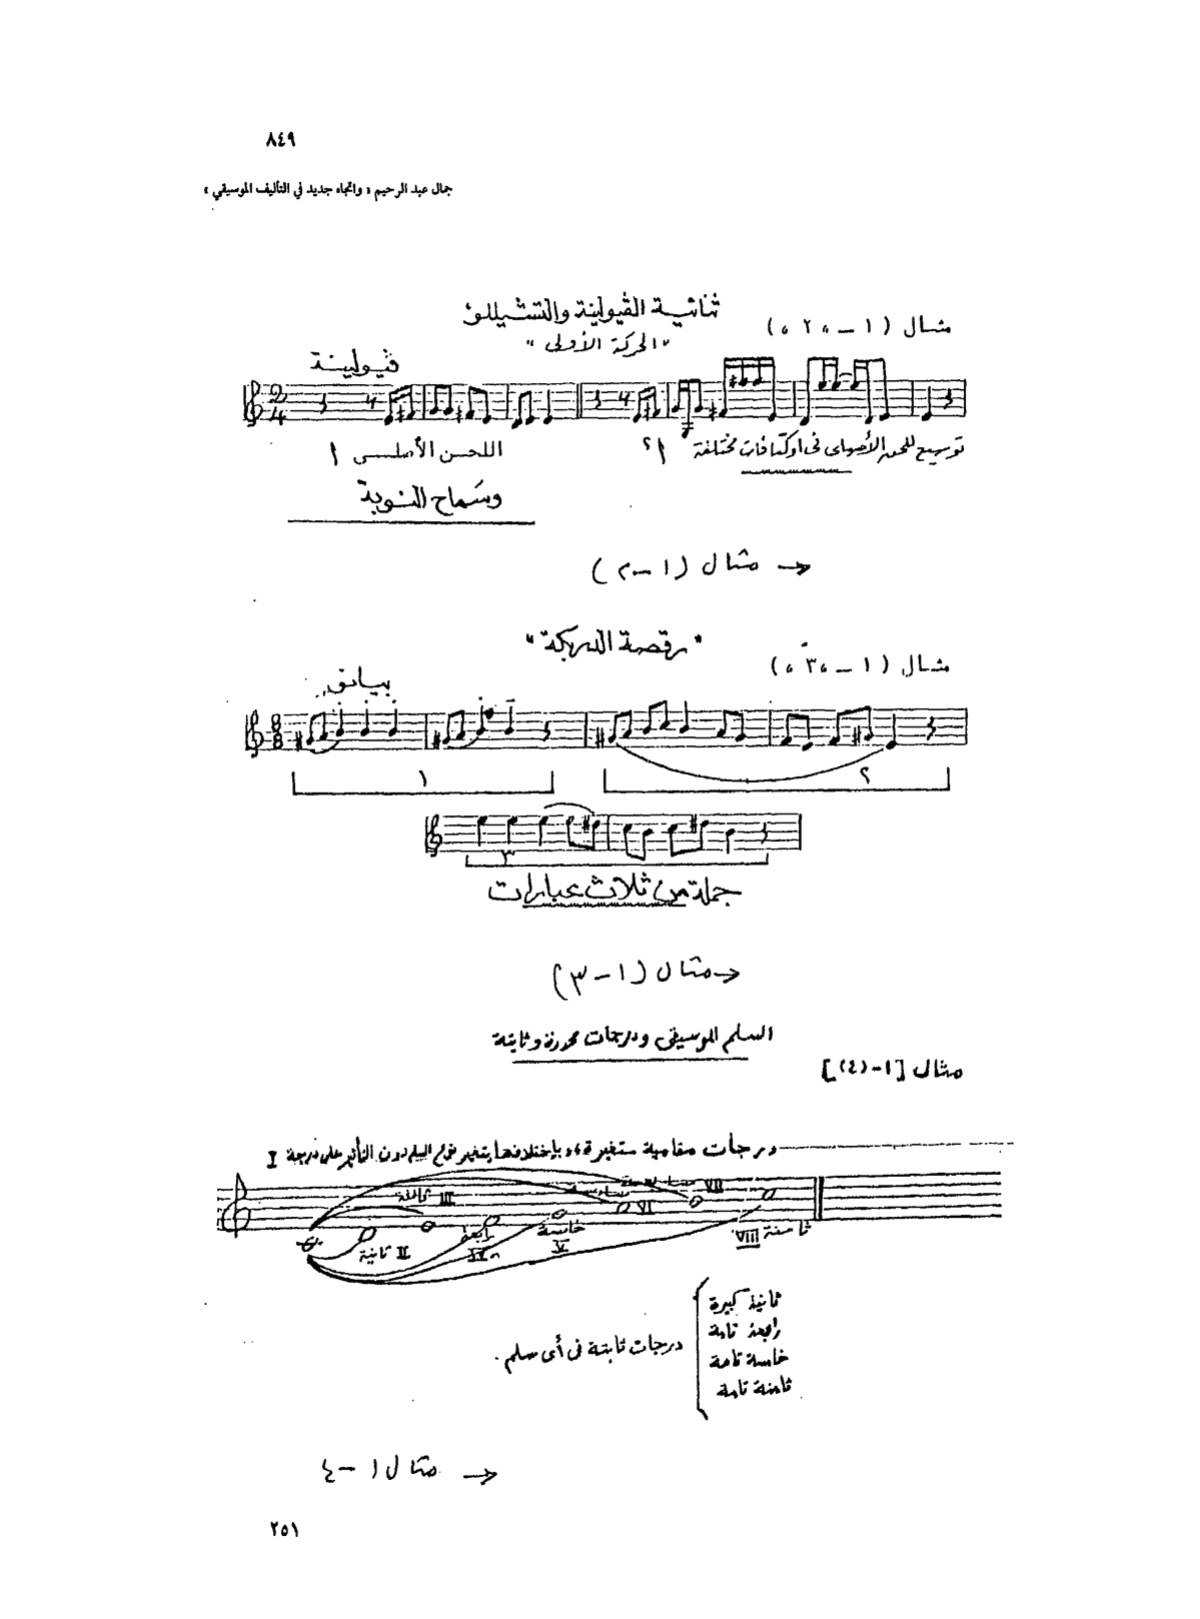 ٨٤٩
جمال عبد الرحيم « واتجاه جديد في التأليف الموسيقي »
ثنائية الڤيولينة والتشيللو
مثال (١ - "٢")
"الحركة الأولى"
ڤيولينة
2/4
اللحن الأصلى ا
توسيع للحن الأصلى فى اوكتافات مختلفة ا٢
وسماح النوبة
← مثال (١ - ٢)
"رقصة الدربكة"
مثال (١ - "٣")
بيانو
8/8
١
٢
٣
جملة من ثلاث عبارات
← مثال (١ - ٣)
السلم الموسيقى ودرجات محورة وثابتة
مثال [١-(٤)]
درجات مقامية متغيرة، وبإختلافها يتغير نوع السلم دون التأثير على درجة I
ثالثة III
سادسة VI
سابعة VII
ثانية II
رابعة IV
خامسة V
ثامنة VIII
ثانية كبيرة
رابعة تامة
خامسة تامة
ثامنة تامة
درجات ثابتة فى أى سلم .
← مثال ١ - ٤
٢٥١